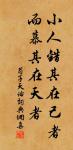 小人错其在己者
而慕其在天者
荀子天论词典网集